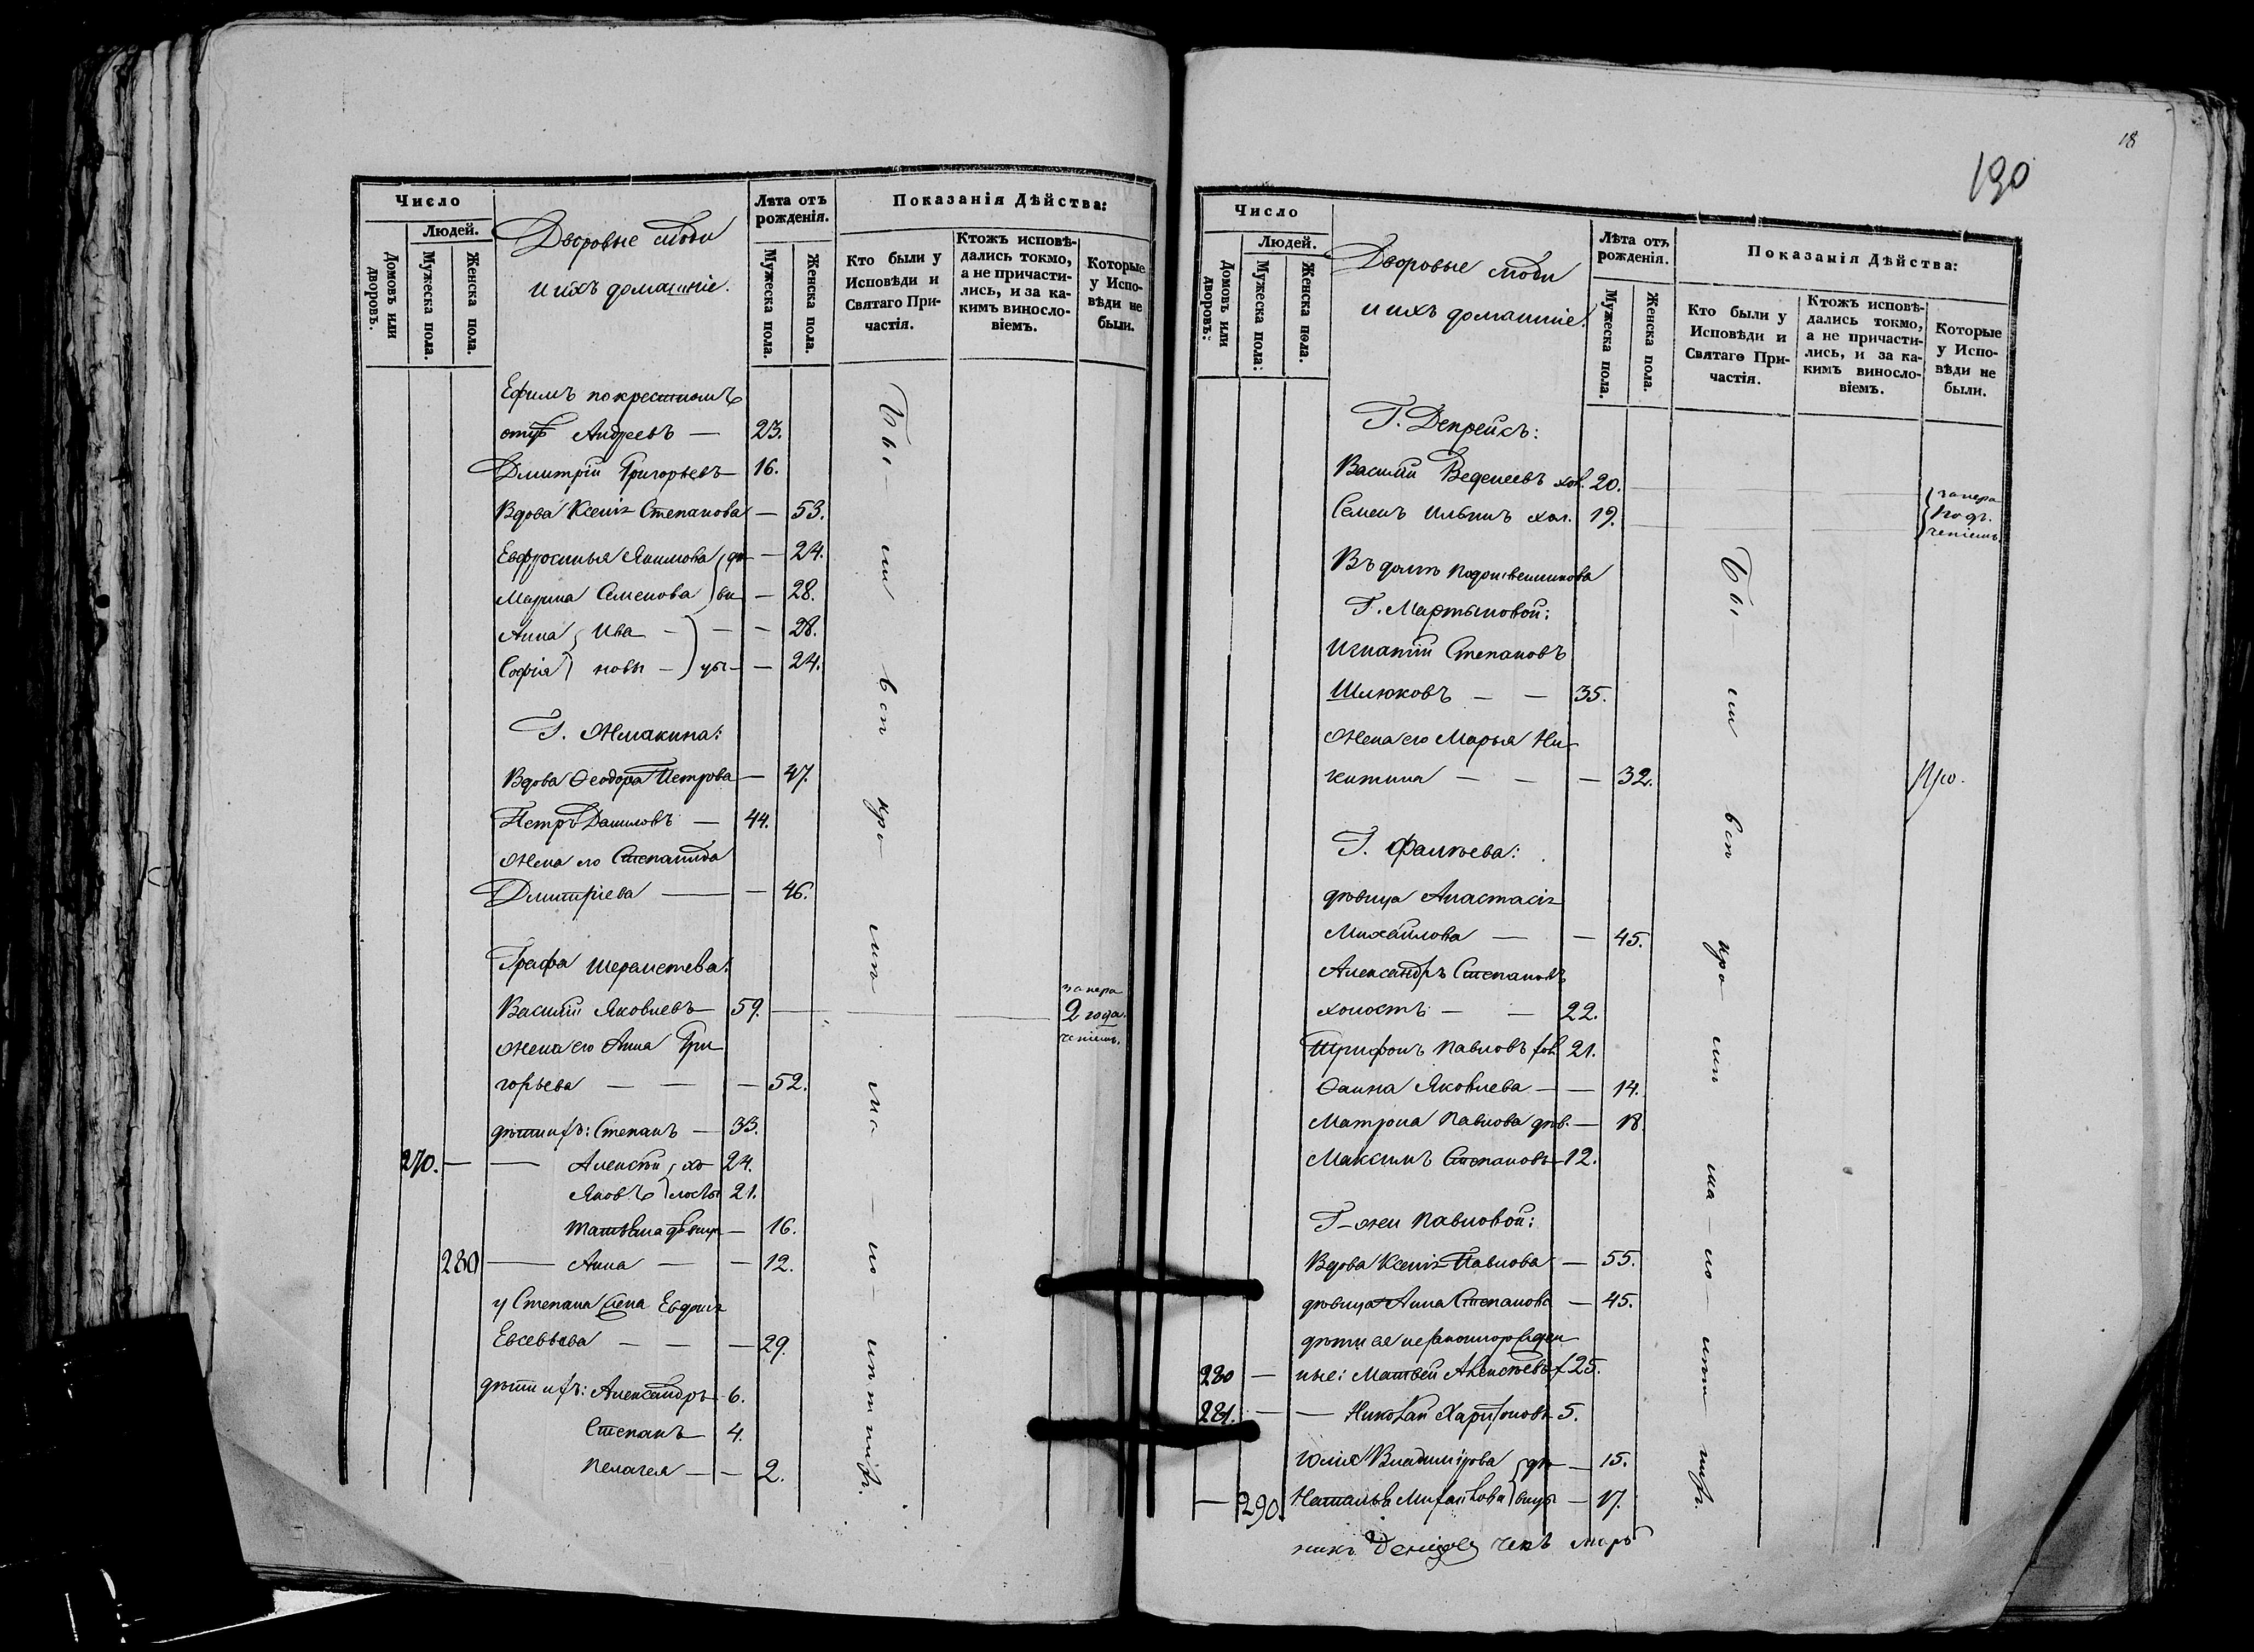 Число
Людей.
Домовъ или дворовъ.
Мужеска пола.
Женска пола.
Дворовые люди
и ихъ домашніе.
Лѣта отъ рожденія.
Мужеска пола.
Женска пола.
Показанія Дѣйства:
Кто были у Исповѣди и Святаго Причастія.
Ктожъ исповѣдались токмо, а не причастились, и за какимъ винословіемъ.
Которые у Исповѣди не были.
Ефимъ по крестномъ
отцѣ Андреевъ — 23.
Дмитрій Григорьевъ — 16.
Вдова Ксенія Степанова — 53.
Евфросинья Якимова дѣ — 24.
Марина Семенова ви — 28.
Анна Ива — — — 28.
Софія новы — цы — — 24.
Г. Жмакина:
Вдова Феодора Петрова — 47.
Петръ Даниловъ — 44.
Жена его Степанида
Дмитріева — — 46.
Графа Шереметева:
Василій Яковлевъ — 59. 2 года.
жена его Анна Гри
горьева — — — 52.
дѣти ихъ: Степанъ — 33.
270. — — Алексѣй хо 24.
Яковъ лосты 21.
Татьяна дѣвица — 16.
280 — Анна — — 12.
у Степана жена Евдокія
Евсевьева — — — 29.
дѣти ихъ: Александръ — 6.
Степанъ 4.
Пелагея — — 2.
18
190
Число
Людей.
Домовъ или дворовъ.
Мужеска пола.
Женска пола.
Дворовые люди
и ихъ домашніе.
Лѣта отъ рожденія.
Мужеска пола.
Женска пола.
Показанія Дѣйства:
Кто были у Исповѣди и Святаго Причастія.
Ктожъ исповѣдались токмо, а не причастились, и за какимъ винословіемъ.
Которые у Исповѣди не были.
Г. Депрейсъ:
Василій Веденеевъ хол. 20.
Семенъ Ильинъ хол. 19.
Въ домѣ
Г. Мартыновой:
Игнатій Степановъ
Шлюковъ — — 35.
Жена его Марья Ни
китина — — — 32.
Г.
дѣвица Анастасія
Михайлова — — 45.
Александръ Степановъ
холостъ — — 22.
Трифонъ Павловъ хол. 21.
Фаина Яковлева — — 14.
Матрона Павлова дѣв. — 18.
Максимъ Степановъ — 12.
Г-жи Павловой:
Вдова Ксенія Павлова — 55.
дѣвица Анна Степанова — 45.
дѣти ея незаконнорожден
280 — ные: Матвей Алексѣевъ х 25.
281. — — Николай Харитоновъ 5.
Юлія Владимірова дѣ — 15.
— 290. Наталья Михайлова вицы — 17.